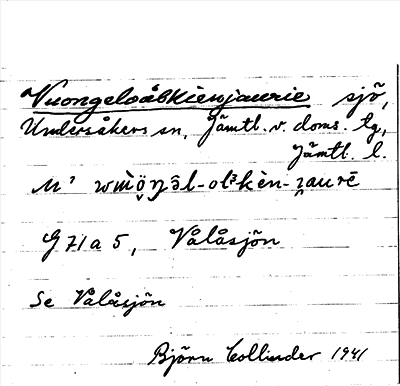 Vuongeloåbkienjaurie sjö,
Undersåkers sn, Jämtl. v. doms. tg,
Jämtl. l.
G 71 a 5, Vålåsjön
Se Vålåsjön
Björn Collinder 1941